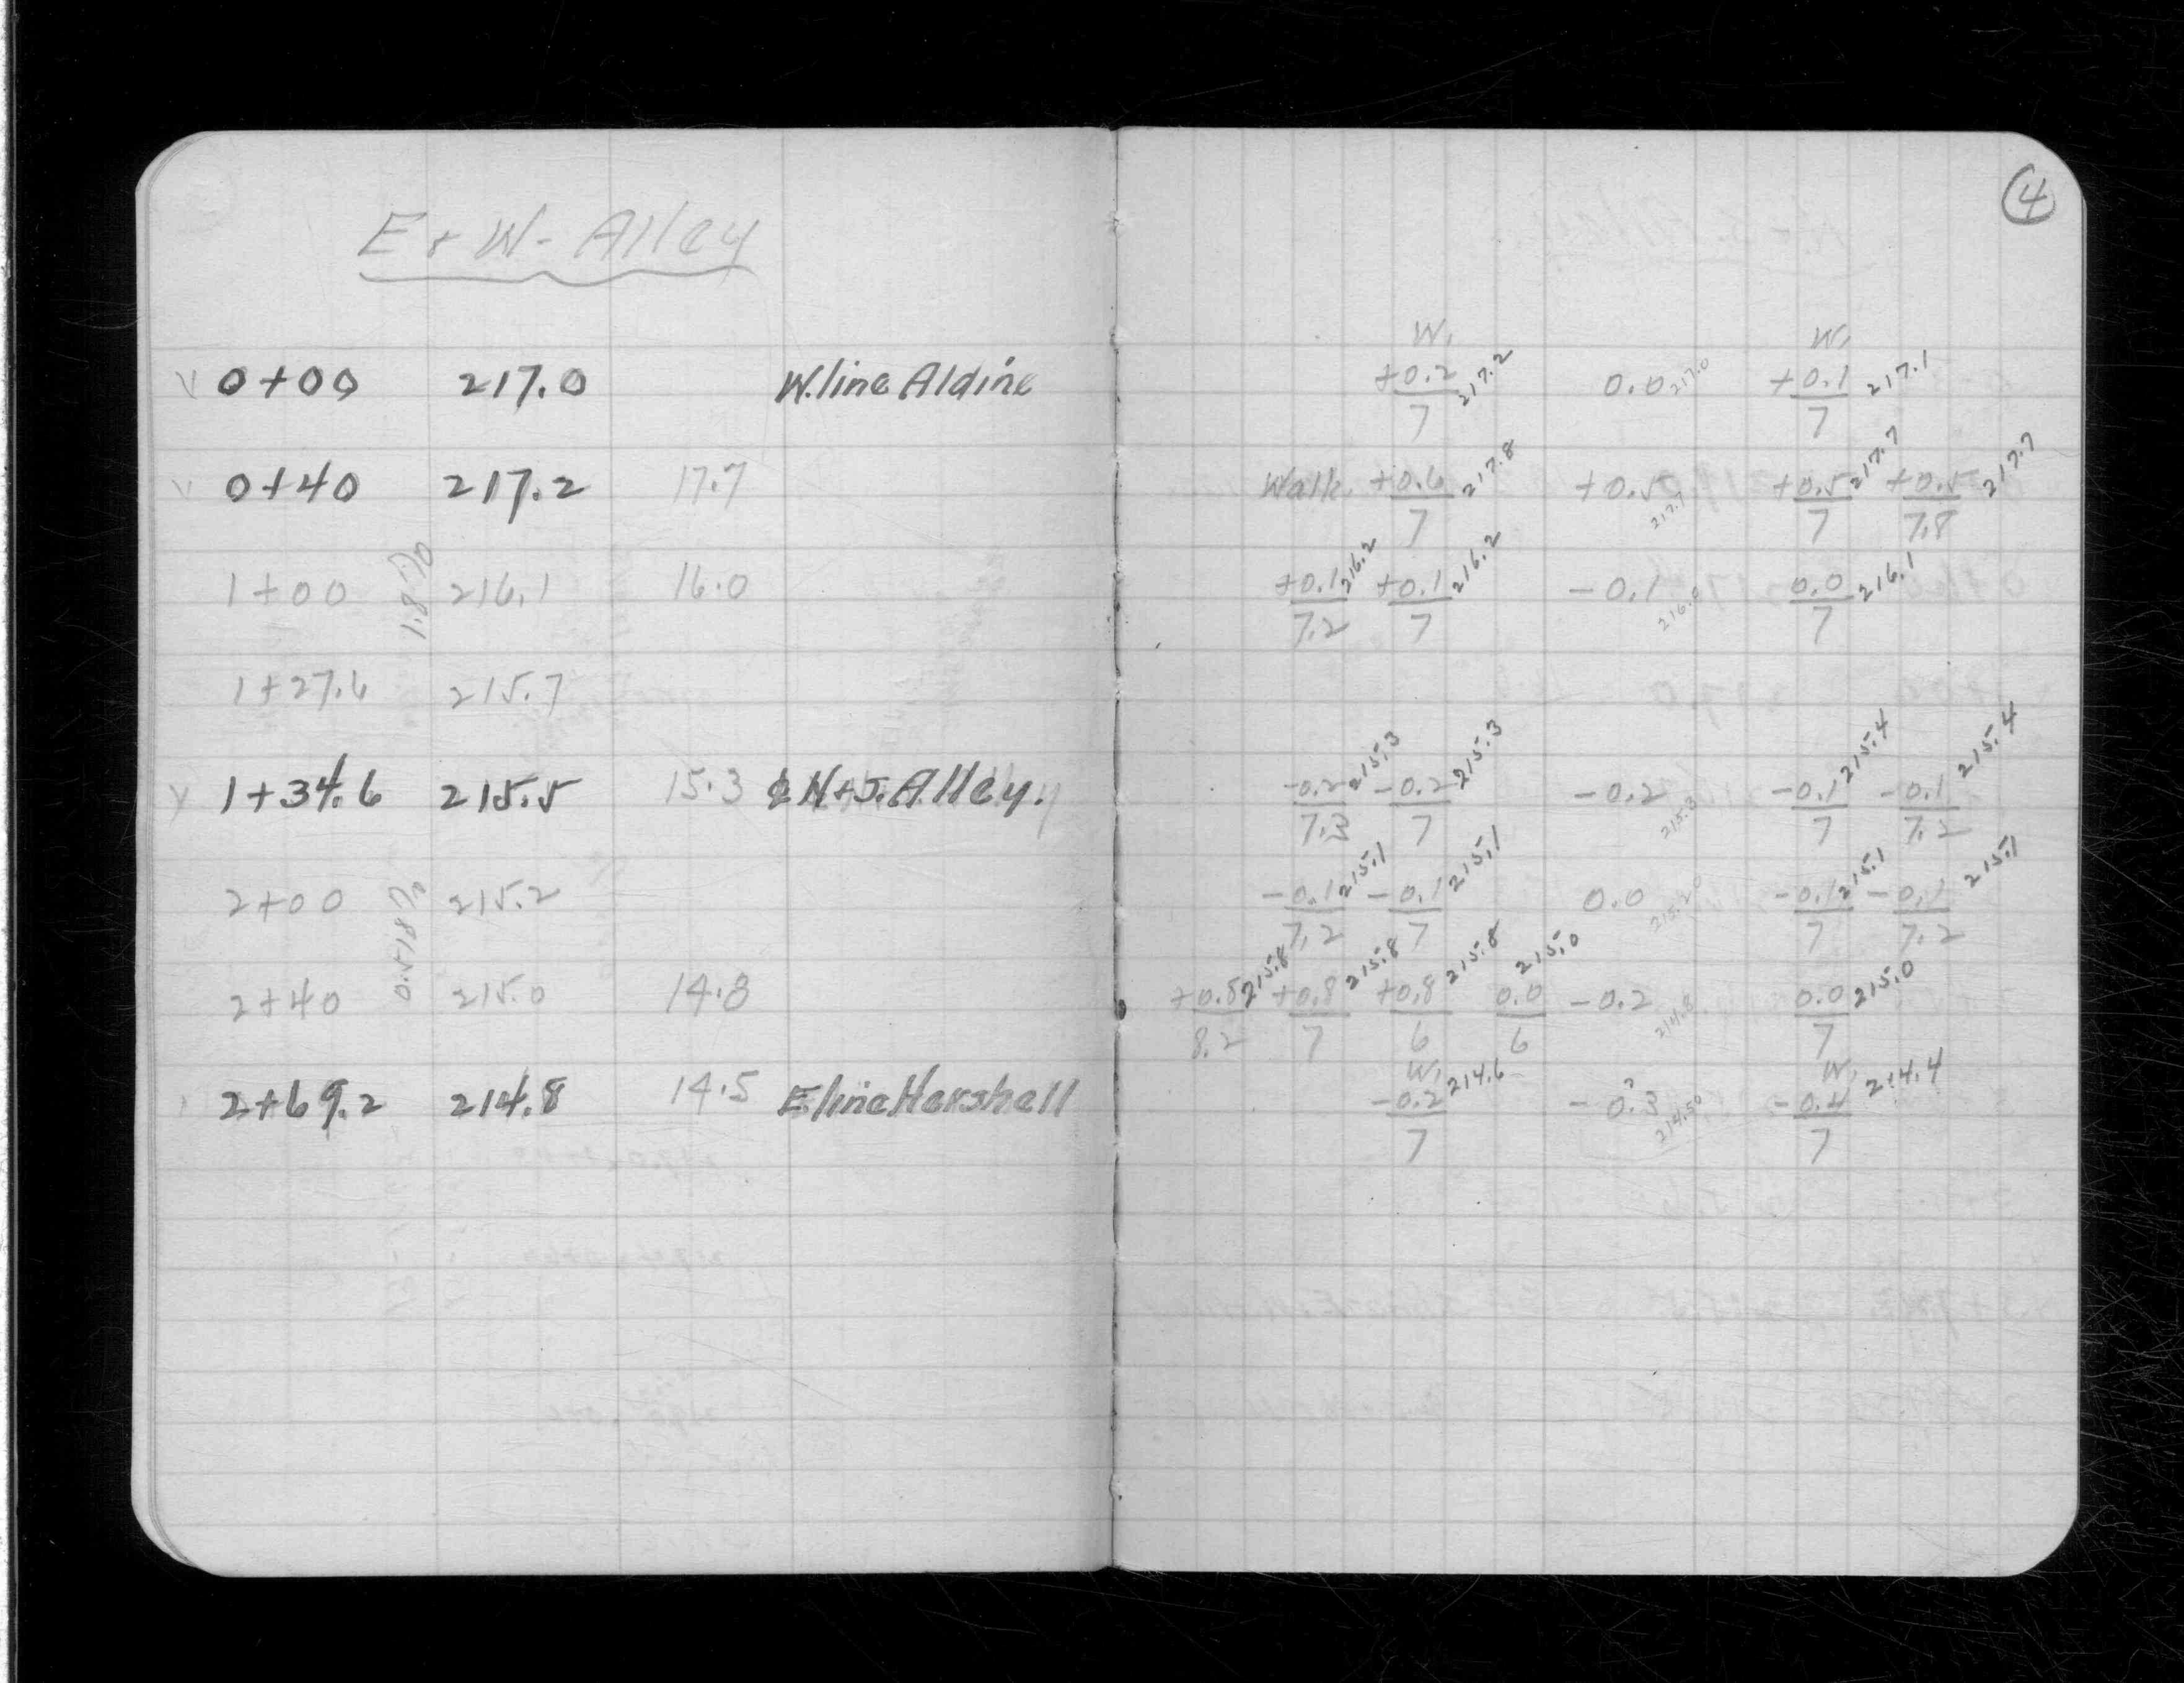 E + W - Alley
0+00 217.0 W. line Aldine
0+40 217.2 17.7
1+00 216.1 16.0
1.8%
1+27.6 215.7
1+34.6 215.5 15.3 ¢ N+S. Alley.
2+00 215.2
0.518%
2+40 215.0 14.8
2+69.2 214.8 14.5 E line Hershell
4
W. W.
+0.2/7 217.2 0.0 217.0 +0.1/7 217.1
Walk +0.6/7 217.8 +0.5 217.7 +0.5/7 217.7 +0.5/7.8 217.7
+0.1/7.2 216.2 +0.1/7 216.2 -0.1 216.0 0.0/7 216.1
-0.2/7.3 215.3 -0.2/7 215.3 -0.2 215.3 -0.1/7 215.4 -0.1/7.2 215.4
-0.1/7.2 215.1 -0.1/7 215.1 0.0 215.20 -0.1/7 215.1 -0.1/7.2 215.1
+0.8/8.2 215.8 +0.8/7 215.8 +0.8/6 215.8 0.0/6 215.0 -0.2 214.8 0.0/7 215.0
W. W.
-0.2/7 214.6 -0.3 214.50 -0.4/7 214.4